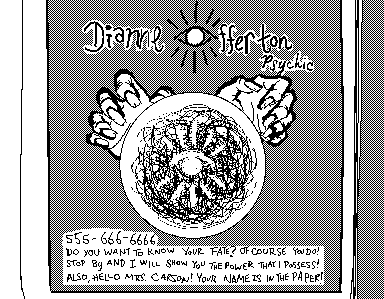 Dianne Offerton
Psychic
555-666-6666
DO YOU WANT TO KNOW YOUR FATE? OF COURSE YOU DO!
STOP By AND I WILL SHOW YOU THE POWER THAT I POSSESS!
ALSO, HELLO MRS. CARSON! YOUR NAME IS IN THE PAPER!